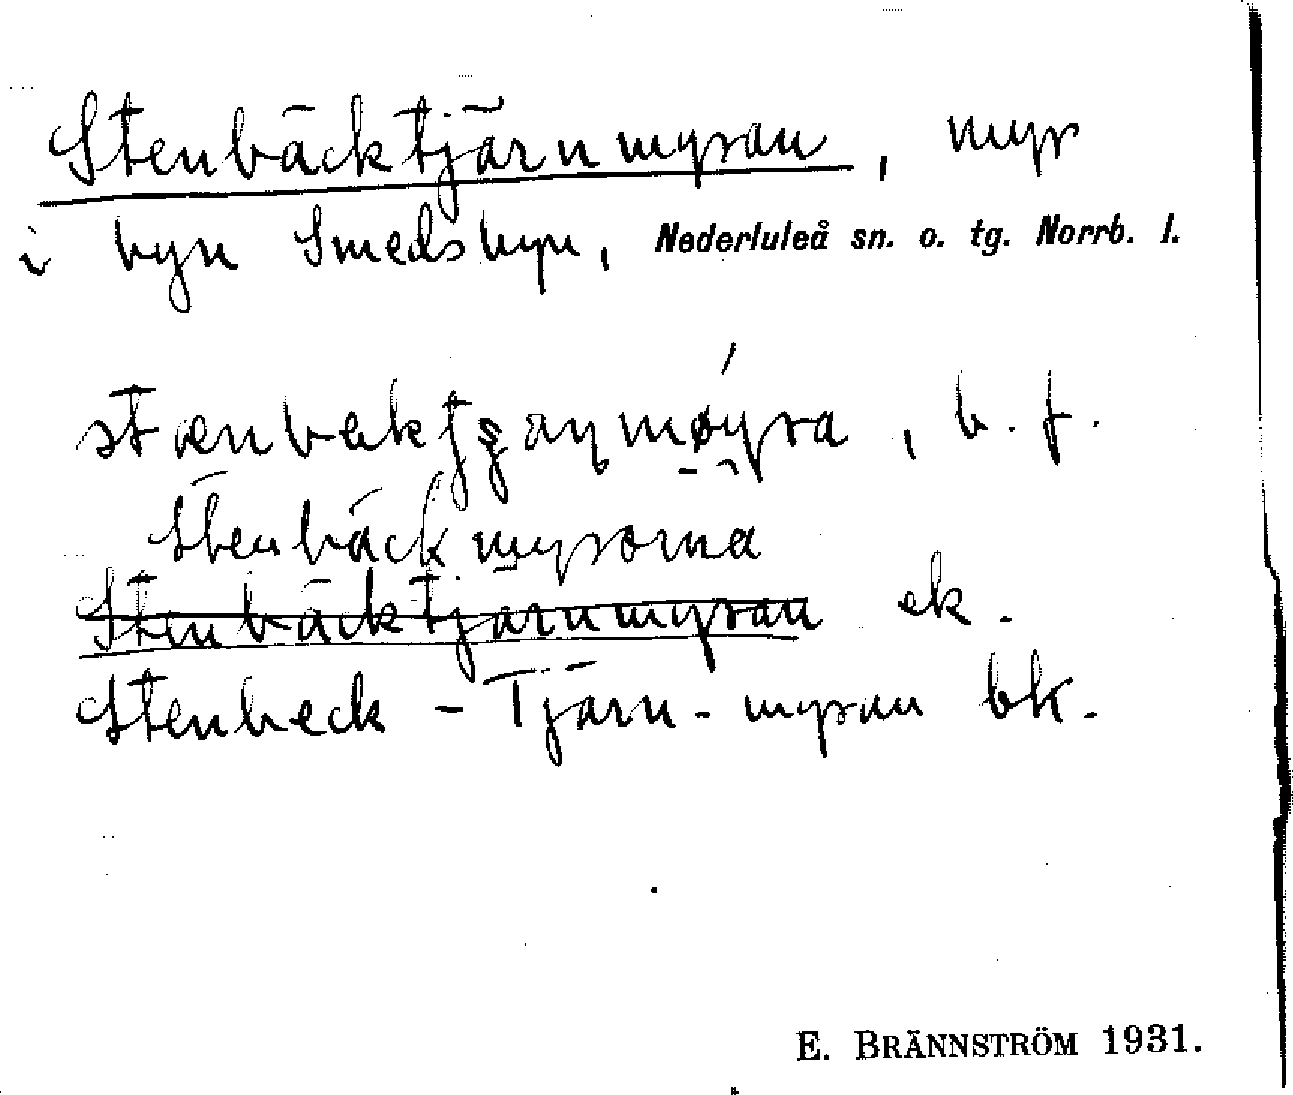 Stenbäcktjärnmyran, myr
i byn Smedsbyn, Nederluleå sn. o. tg. Norrb. l.
b. f.
Stenbäckmyrorna
Stenbäcktjärnmyran ek.
Stenbeck - Tjärn - myran bk.
E. BRÄNNSTRÖM 1931.